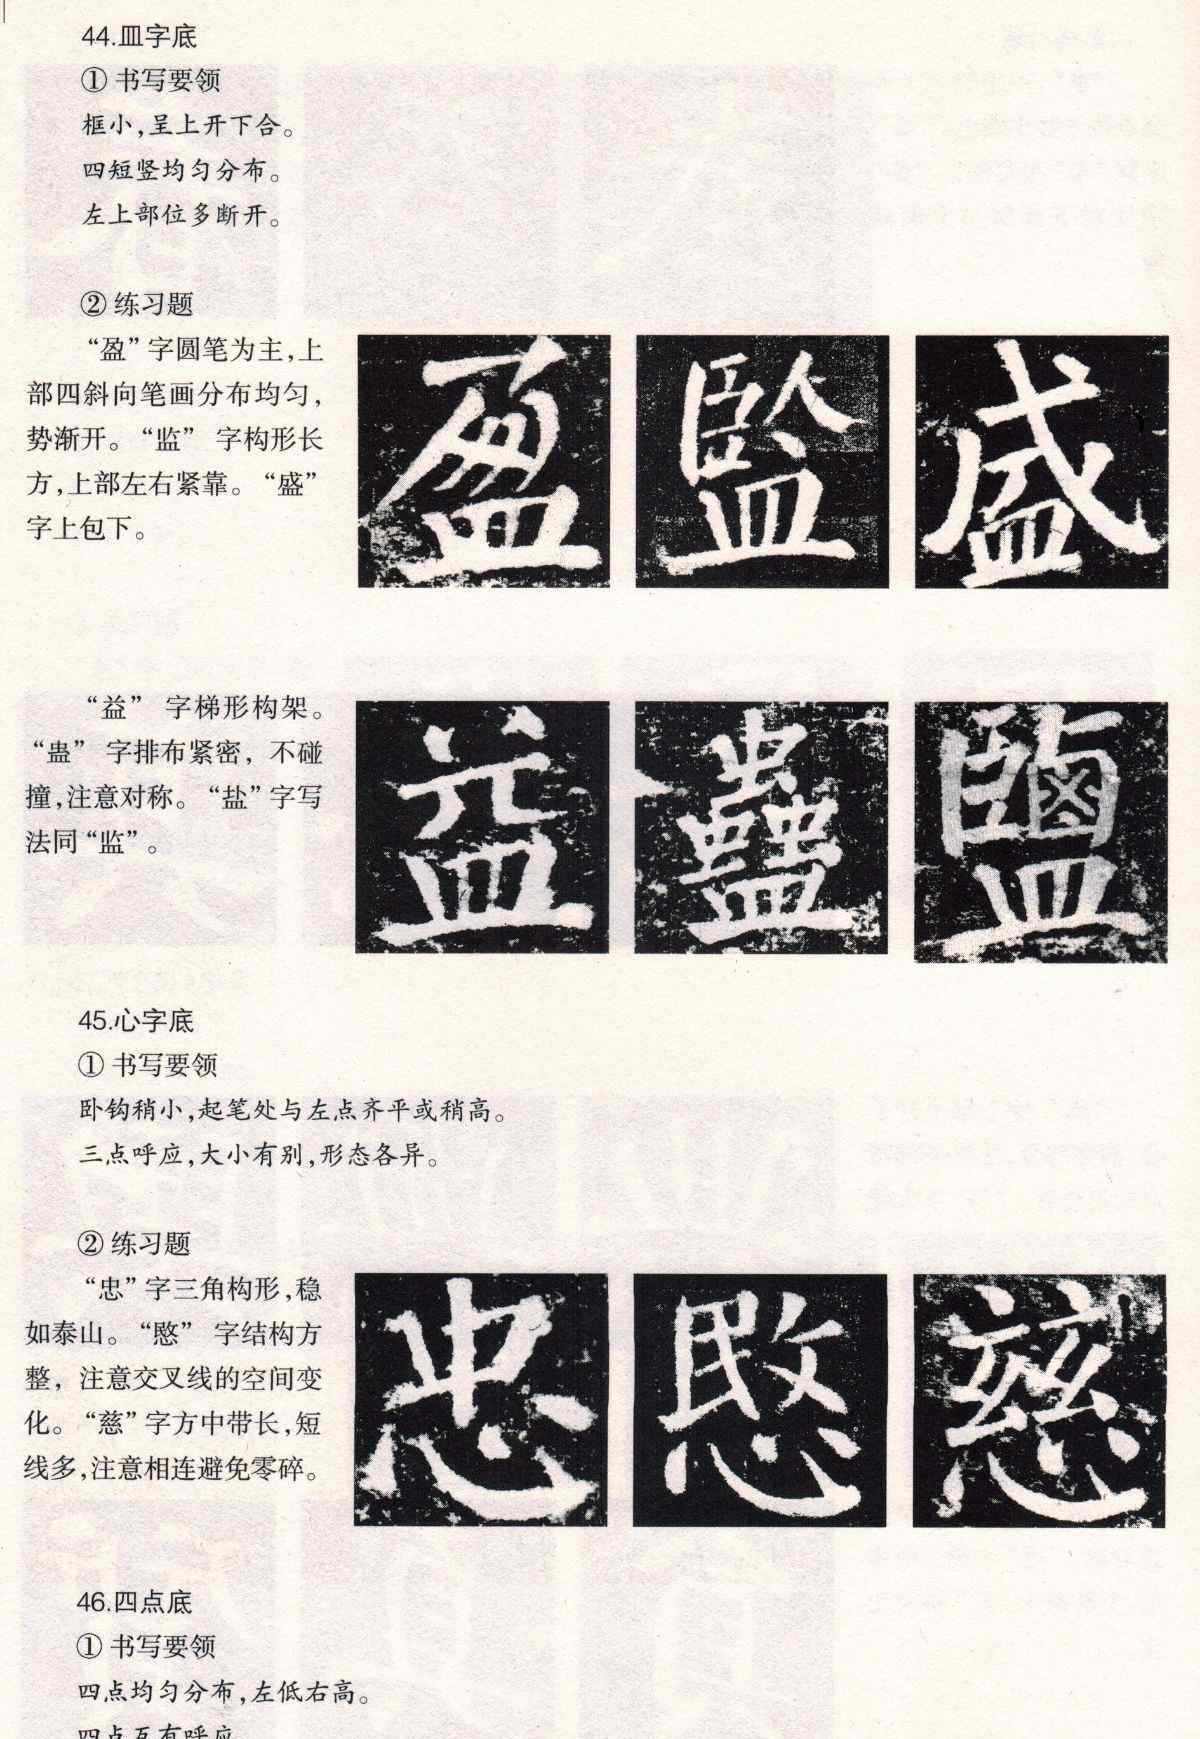 44.皿字底
① 书写要领
框小,呈上开下合。
四短竖均匀分布。
左上部位多断开。
② 练习题
“盈”字圆笔为主,上
部四斜向笔画分布均匀,
势渐开。“监” 字构形长
方,上部左右紧靠。“盛”
字上包下。
盈 監 盛
“益” 字梯形构架。
“蛊” 字排布紧密, 不碰
撞,注意对称。“盐”字写
法同“监”。
益 蠱 鹽
45.心字底
① 书写要领
卧钩稍小,起笔处与左点齐平或稍高。
三点呼应,大小有别,形态各异。
② 练习题
“忠”字三角构形,稳
如泰山。“愍” 字结构方
整, 注意交叉线的空间变
化。“慈”字方中带长,短
线多,注意相连避免零碎。
忠 愍 慈
46.四点底
① 书写要领
四点均匀分布,左低右高。
四点互有呼应